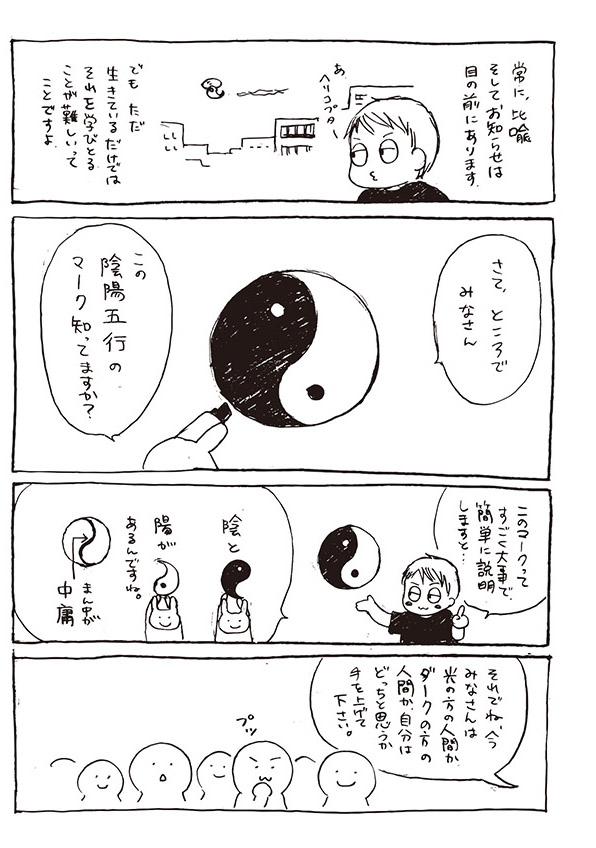 常に、比喩
そしてお知らせは
目の前にあります。
あ、
ヘリコプター
でも ただ
生きているだけでは
それを学びとる
ことが難しいって
ことですよ
さて、ところで
みなさん
この
陰陽五行の
マーク知ってますか?
このマークって
すごく大事で
簡単に説明
しますと…
陰と
陽が
あるんですね。
まん中が
中庸
それでね、今
みなさんは
光の方の人間か
ダークの方の
人間か、自分は
どっちと思うか
手を上げて
下さい。
プッ